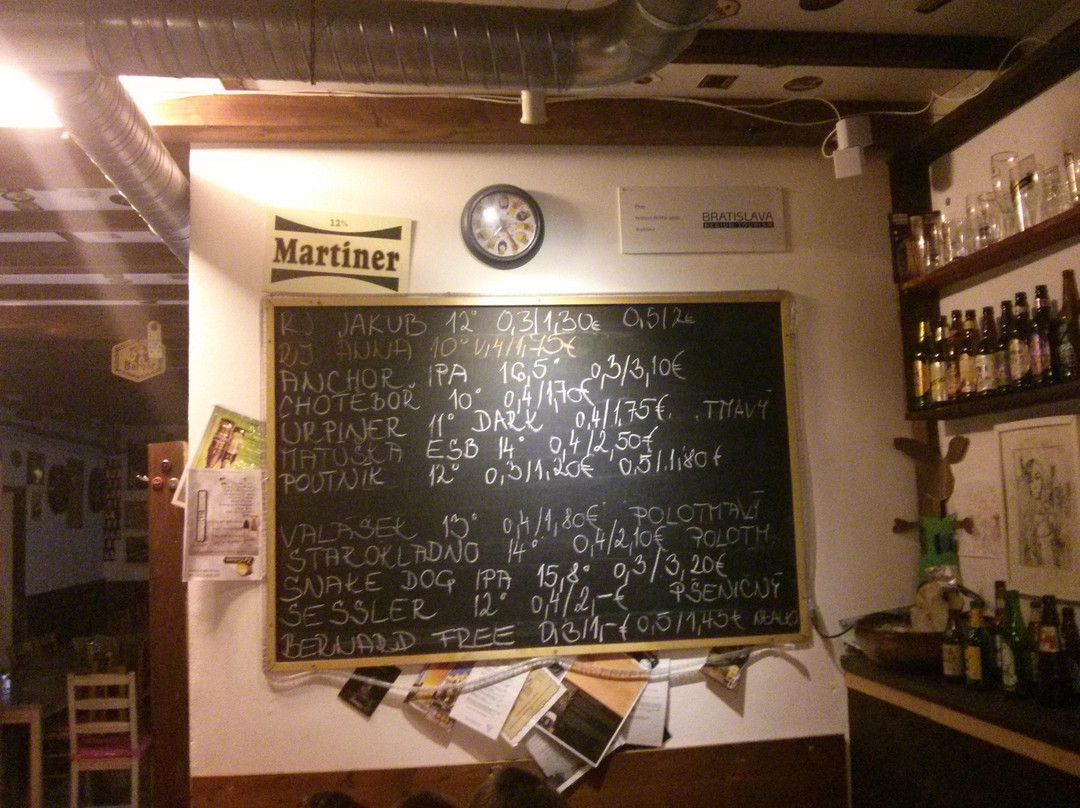 12%
Martiner
BRATISLAVA
RJ JAKUB 12° 0,3/1,30€ 0,5/2€
RJ ANNA 10° 0,4/1,75€
ANCHOR IPA 16,5° 0,3/3,10€
CHOTĚBOŘ 10° 0,4/1,70€
URPINER 11° DARK 0,4/1,75€ TMAVÝ
MATUŠKA ESB 14° 0,4/2,50€
POUTNÍK 12° 0,3/1,20€ 0,5/1,80€
VALÁŠEK 13° 0,4/1,80€ POLOTMAVÝ
STAROKLADNO 14° 0,4/2,10€ POLOTM.
SNAKE DOG IPA 15,8° 0,3/3,20€
SESSLER 12° 0,4/2,-€ PŠENIČNÝ
BERNARD FREE 0,3/1,-€ 0,5/1,45€ NEALKO